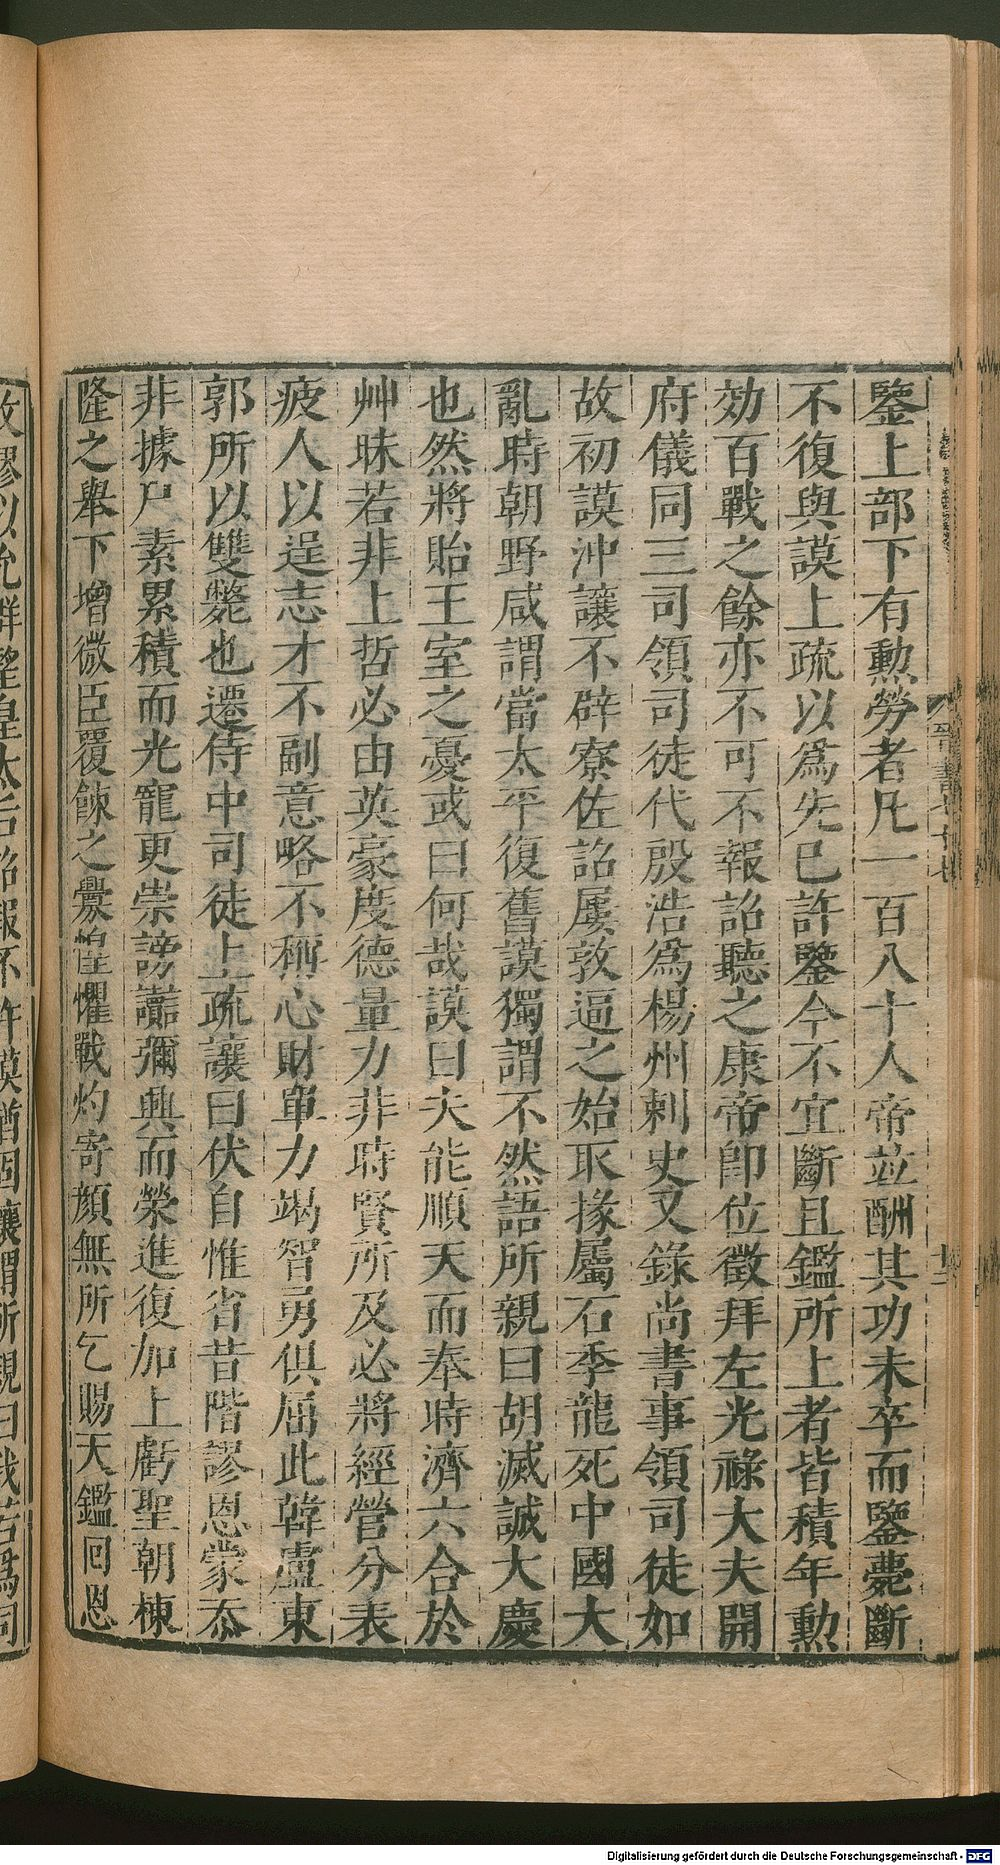 鑒上部下有勲勞者凡一百八十人帝並酬其功未卒而鑒薨斷
不復與謨上疏以爲先已許鑒今不宜斷且鑑所上者皆積年勲
効百戰之餘亦不可不報詔聽之康帝卽位徵拜左光祿大夫開
府儀同三司領司徒代殷浩爲楊州刺史又錄尚書事領司徒如
故初謨沖讓不辟寮佐詔屢敦逼之始取掾屬石季龍死中國大
亂時朝野咸謂當太平復舊謨獨謂不然語所親曰胡滅誠大慶
也然將貽王室之憂或曰何哉謨曰夫能順天而奉時濟六合於
艸昧若非上哲必由英豪度德量力非時賢所及必將經營分表
疲人以逞志才不副意略不稱心財單力竭智勇俱屈此韓盧東
郭所以雙斃也遷侍中司徒上疏讓曰伏自惟省昔階謬恩蒙忝
非據尸素累積而光寵更崇謗讟彌興而榮進復加上虧聖朝棟
隆之舉下增微臣覆餗之釁惶懼戰灼寄顏無所乞賜天鑑回恩
晉書七十七
改謬以允群望皇太后詔報不許謨猶固讓謂所親曰我若爲司
Digitalisierung gefördert durch die Deutsche Forschungsgemeinschaft - DFG